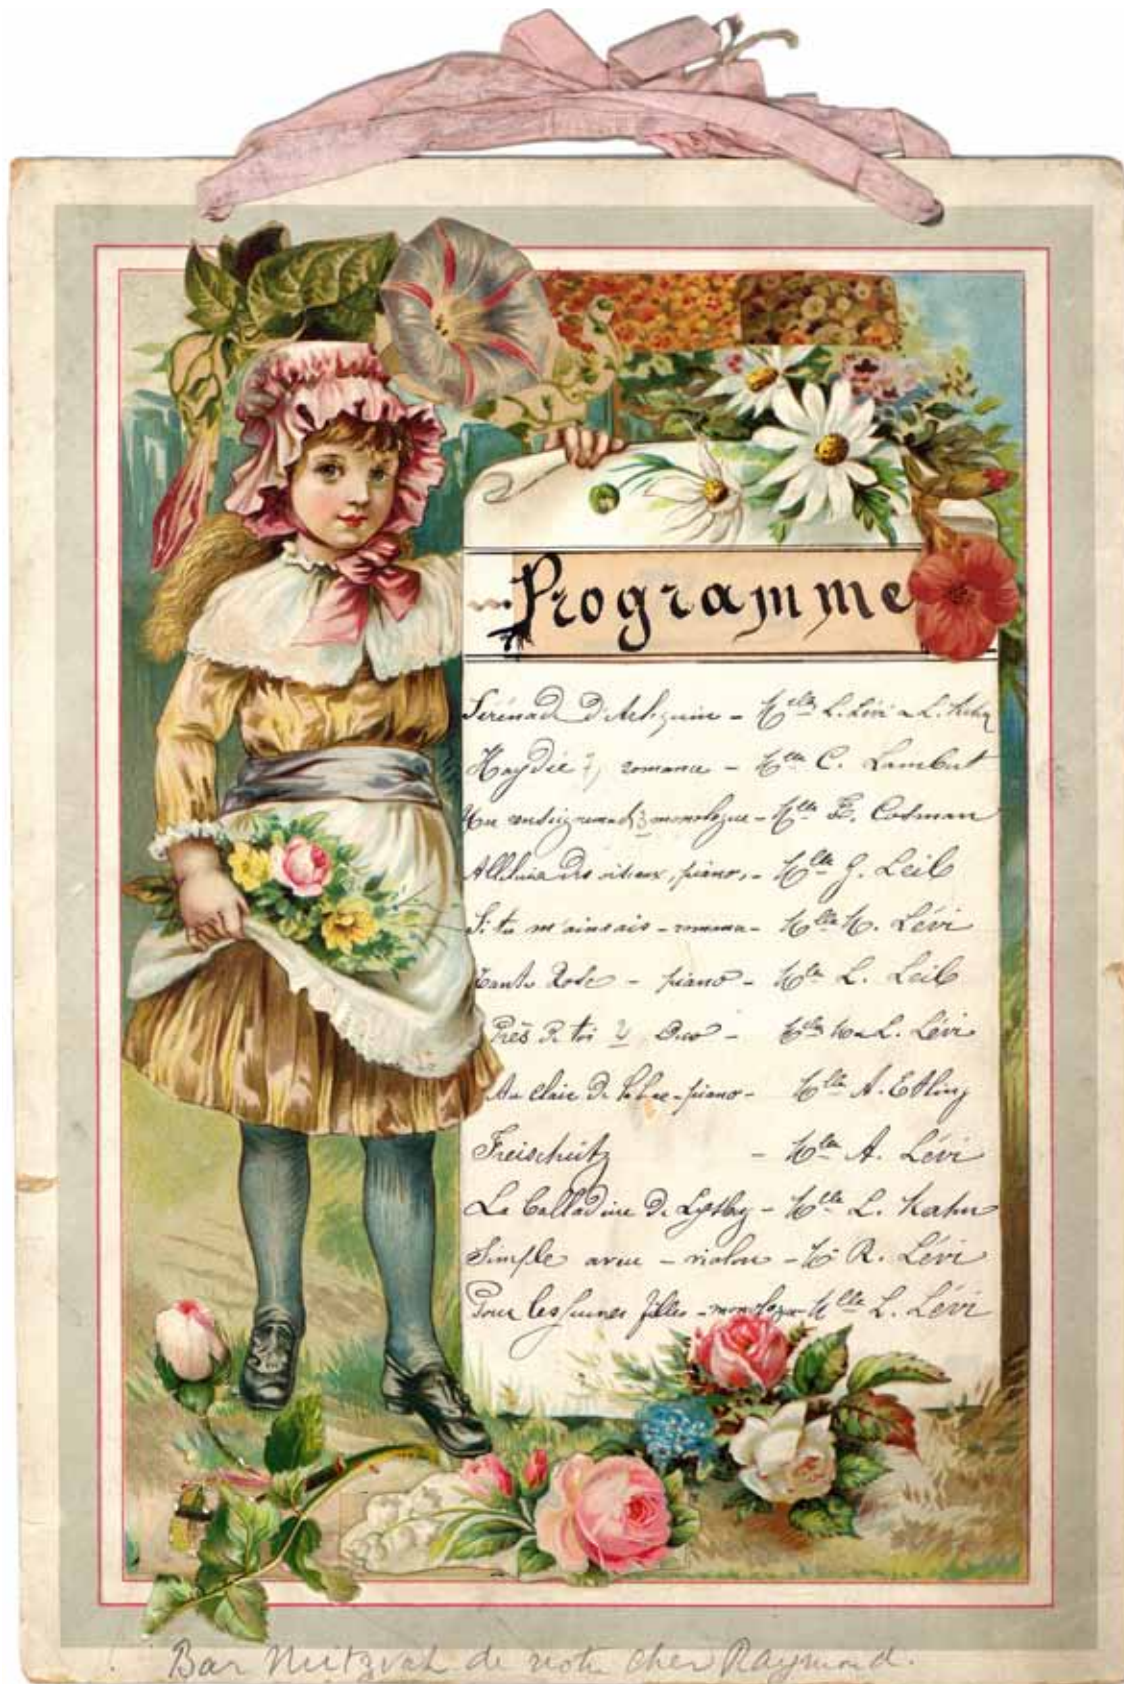 Programme
Sérénade d'Arlequin - Mlles L. Lévi & L. Kahn
Haydée 2, romance - Mlle C. Lambert
Un renseignement 3 monologue - Mlle E. Cosman
Alleluia des oiseaux, piano, - Mlle G. Leib
Si tu m'aimais - romance - Mlle M. Lévi
Tante Rose - piano - Mlle L. Leib
Près de toi 4 Duo - Mlles M & L. Lévi
Au clair de la lune - piano - Mlle A. Etling
Freischütz - Mlle A. Lévi
La balladine de Lysberg - Mlle L. Kahn
Simple aveu - violon - M. R. Lévi
Pour les jeunes filles - monologue Mlle L. Lévi
Bar Mitzvah de notre cher Raymond.